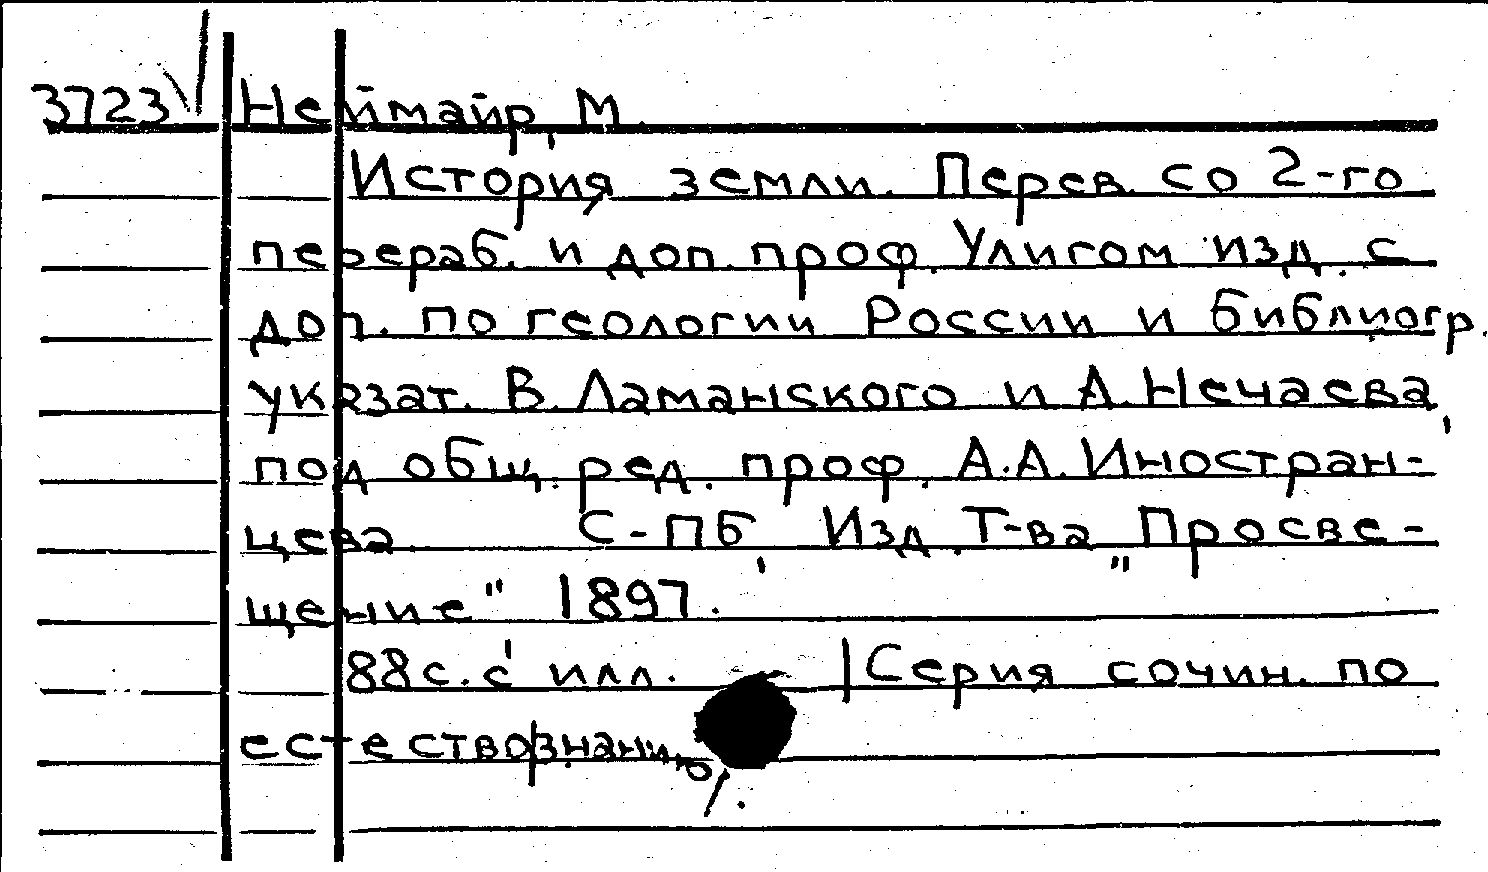 3723 Неймайр, М.
История земли. Перев. со 2-го
перераб. и доп. проф. Улигом изд. с
доп. по геологии России и библиогр.
указат. В. Ламанского и А. Нечаева,
под общ. ред. проф. А.А. Иностран-
цева. С-ПБ, Изд. Т-ва „Просве-
щение" 1897.
88 с. с илл. |Серия сочин. по
естествознанию/.